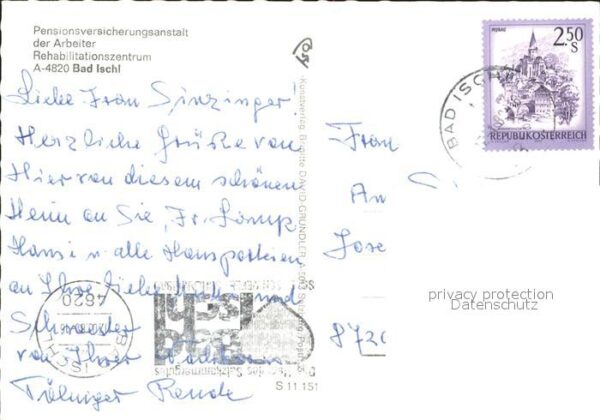 Pensionsversicherungsanstalt
der Arbeiter
Rehabilitationszentrum
A-4820 Bad Ischl
Liebe Frau Sinzinger!
Herzliche Grüße von
Hier von diesem schönen
Heim an Sie, Fr.
Hansi u alle Hausparteien
an Ihre liebe Mutter und
Schwester
von Ihrer
Rende
Kunstverlag Brigitte DAVID-GRÜNDLER A-
S 11 151
MURAU
2.50
S
REPUBLIK ÖSTERREICH
BAD ISCHL
4820
Frau
An
Jose
872
privacy protection
Datenschutz